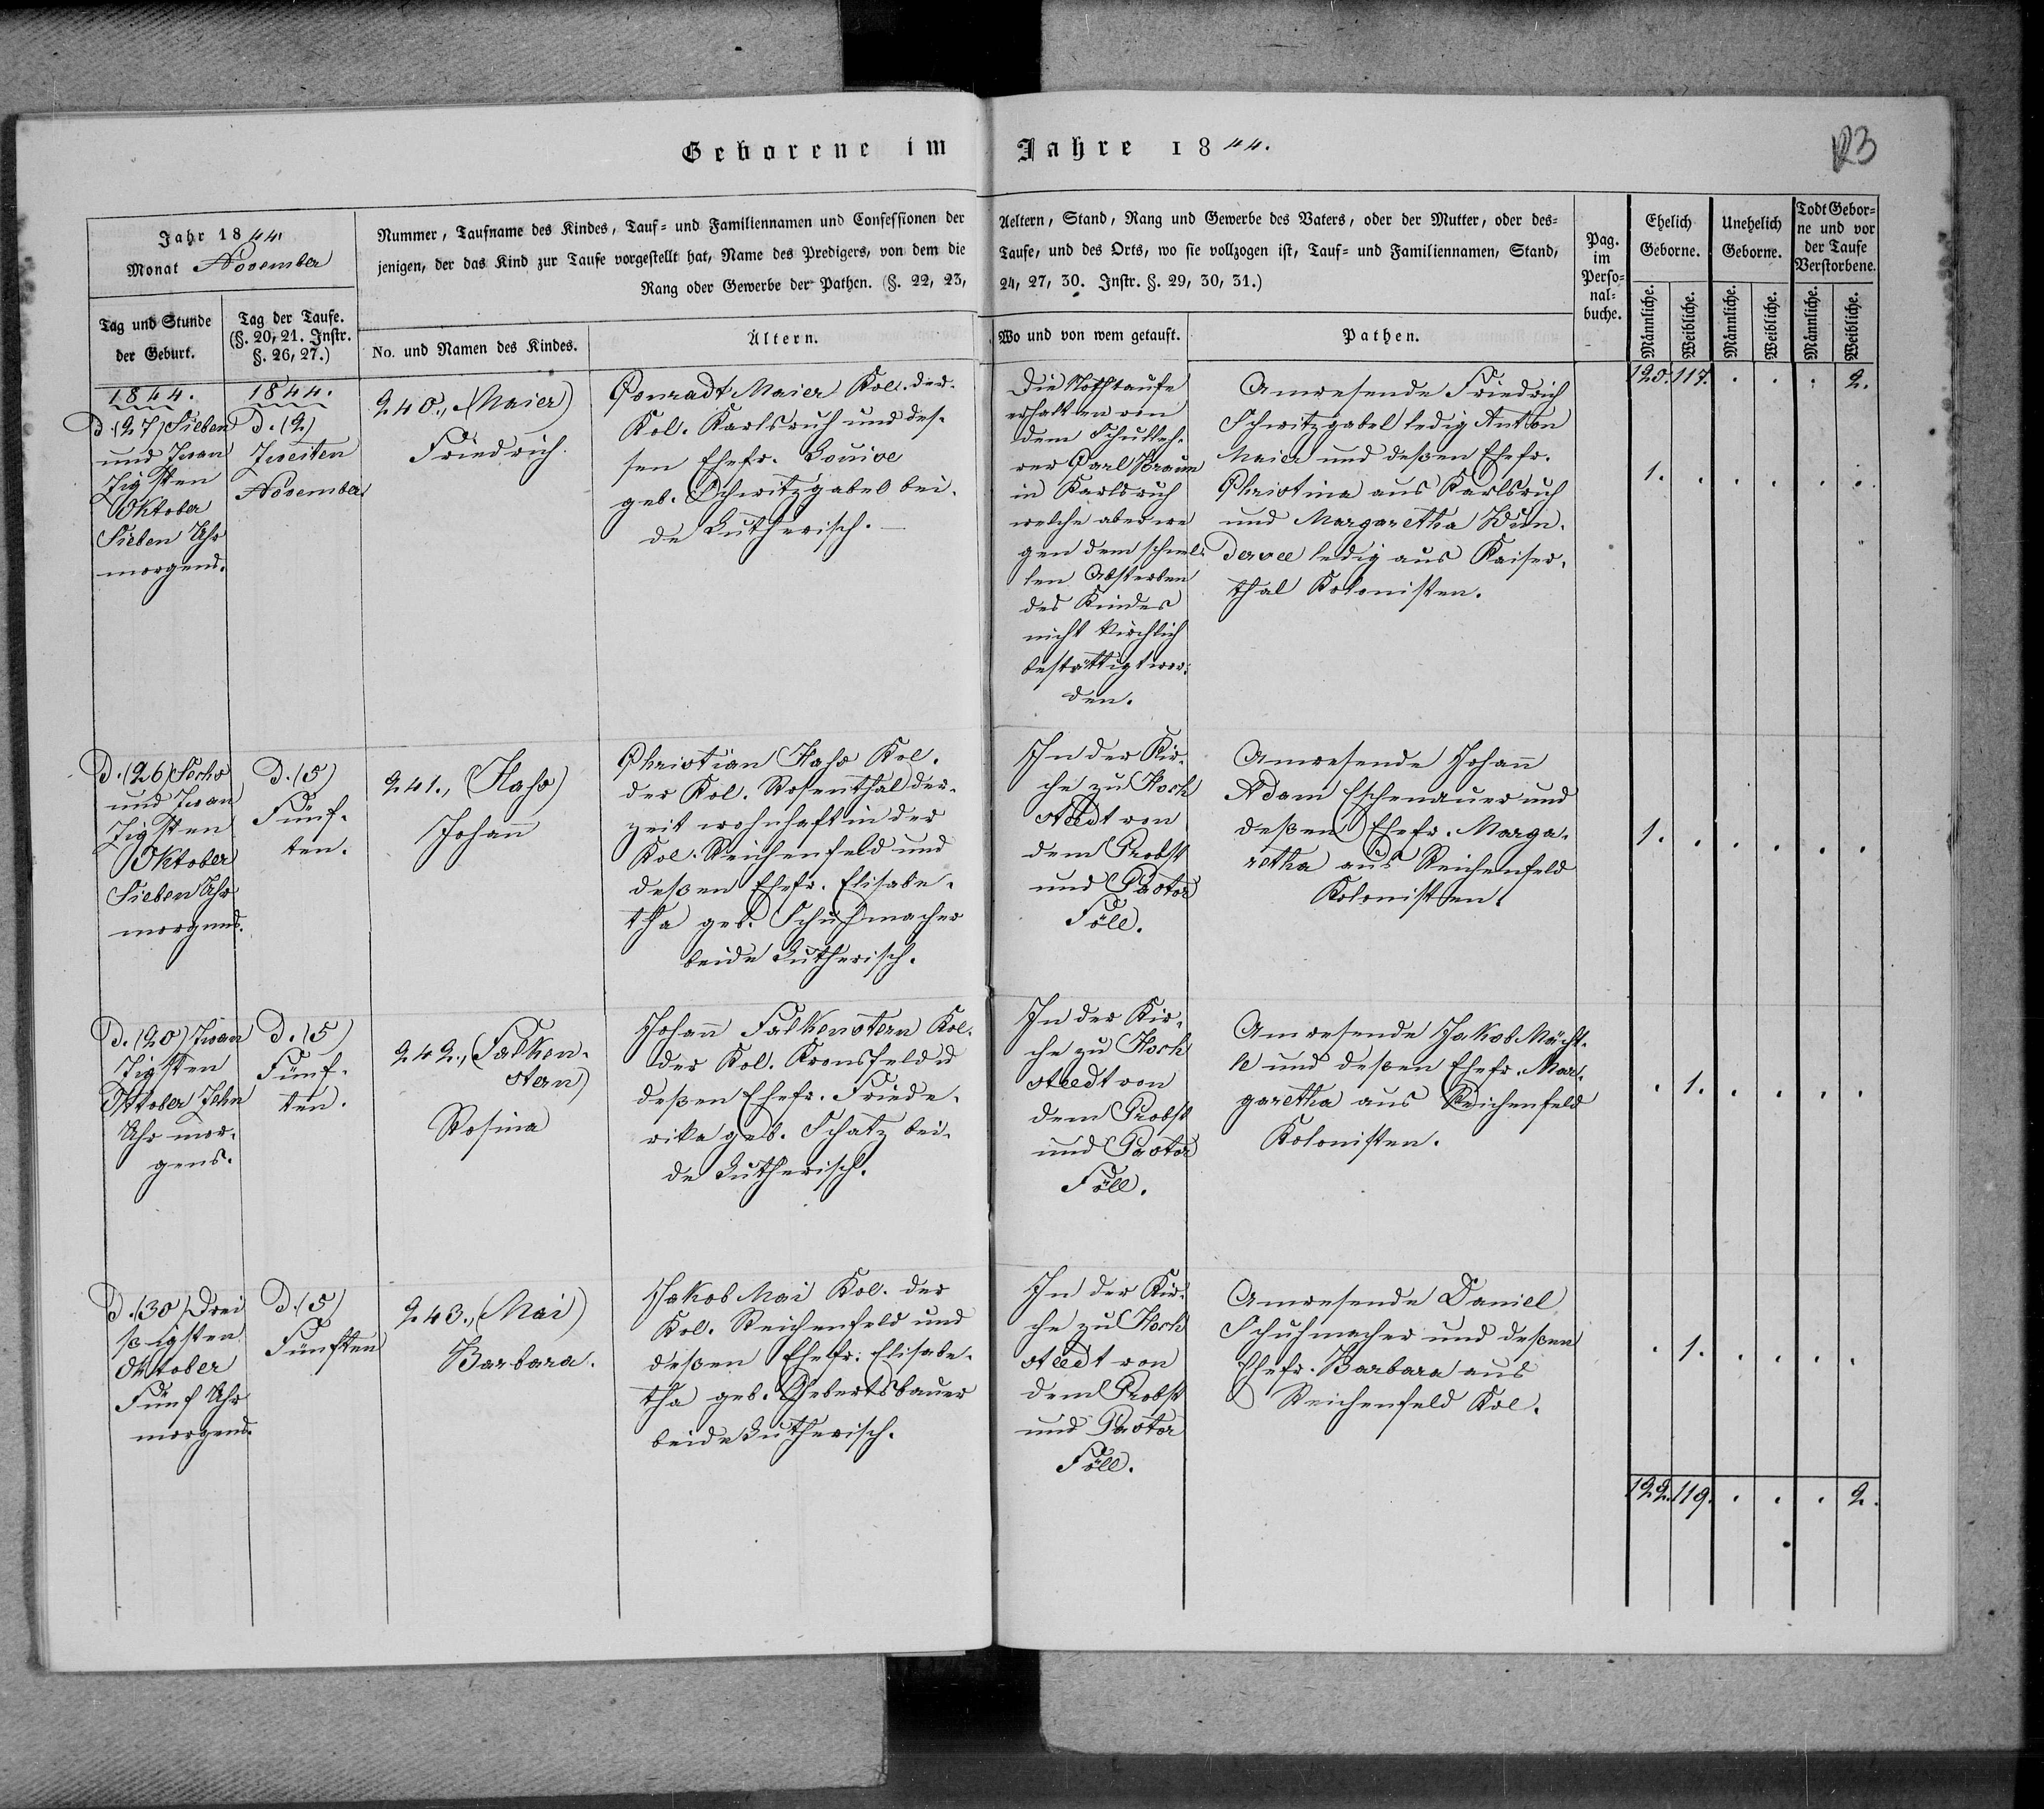 Geborene im Jahre 1844.
123
Jahr 1844.
Monat November
Nummer, Taufname des Kindes, Tauf- und Familiennamen und Confessionen der Aeltern, Stand, Rang und Gewerbe des Vaters, oder der Mutter, oder des-
jenigen, der das Kind zur Taufe vorgestellt hat, Name des Predigers, von dem die Taufe, und des Orts, wo sie vollzogen ist, Tauf- und Familiennamen, Stand,
Rang oder Gewerbe der Pathen. (§. 22, 23, 24, 27, 30. Instr. §. 29, 30, 31.)
Pag.
im
Perso-
nal-
buche.
Ehelich
Geborne.
Unehelich
Geborne.
Todt Gebor-
ne und vor
der Taufe
Verstorbene.
Tag und Stunde
der Geburt.
Tag der Taufe.
(§. 20, 21. Instr.
§. 26, 27.)
No. und Namen des Kindes.
Ältern.
Wo und von wem getauft.
Pathen.
Männliche.
Weibliche.
Männliche.
Weibliche.
Männliche.
Weibliche.
120. 117. . . . 2.
1844.
D. (27) Sieben
und zwan
zigsten
Oktober
Sieben Uhr
morgens.
1844.
D. (2)
Zweiten
November
240., (Maier)
Friedrich.
Conradt Maier Kol. der
Kol. Karlsruh und des-
sen Ehefr. Louise
geb. Schwitzgabel bei-
de Lutherisch.
Die Nothtaufe
erhalten von
dem Schulleh-
rer Carl Braun
in Karlsruh
welche aber we
gen dem schnel-
len Absterben
des Kindes
nicht kirchlich
bestättigt wor-
den.
Anwesende Friedrich
Schwitzgabel ledig Anton
Maier und deßen Ehefr.
Christina aus Karlsruh
und Margaretha Wun-
dervee ledig aus Kaiser-
thal Kolonisten.
1. . . . . .
D. (26) Sechs
und zwan
zigsten
Oktober
Sieben Uhr
morgens.
D. (5)
Fünf-
ten.
241., (Hass)
Johann
Christian Hass Kol.
der Kol. Rosenthal der-
zeit wohnhaft in der
Kol. Reichenfeld und
deßen Ehefr. Elisabe-
tha geb. Schuhmacher
beide Lutherisch.
In der Kir-
che zu Hoch
städt von
dem Probst
und Pastor
Föll.
Anwesende Johann
Adam Eschenauer und
deßen Ehefr. Marga-
retha aus Reichenfeld
Kolonisten.
1. . . . . .
D. (20) Zwan
zigsten
Oktober Zehn
Uhr mor-
gens.
D. (5)
Fünf-
ten.
242., (Falken-
stern)
Rosina
Johann Falkenstern Kol.
der Kol. Kronsfeld u
deßen Ehefr. Friede-
rika geb. Schatz bei-
de Lutherisch.
In der Kir-
che zu Hoch
städt von
dem Probst
und Pastor
Föll.
Anwesende Jakob Mächt-
le und deßen Ehefr. Mar-
garetha aus Reichenfeld
Kolonisten.
. 1. . . . .
D. (30) Drei
ßigsten
Oktober
Fünf Uhr
morgens.
D. (5)
Fünften
243., (Mai)
Barbara.
Jakob Mai Kol. der
Kol. Reichenfeld und
deßen Ehefr. Elisabe-
tha geb. Gebertsbauer
beide Lutherisch.
In der Kir-
che zu Hoch
städt von
dem Probst
und Pastor
Föll.
Anwesende Daniel
Schuhmacher und deßen
Ehefr. Barbara aus
Reichenfeld Kol.
. 1. . . . .
122. 119. . . . 2.